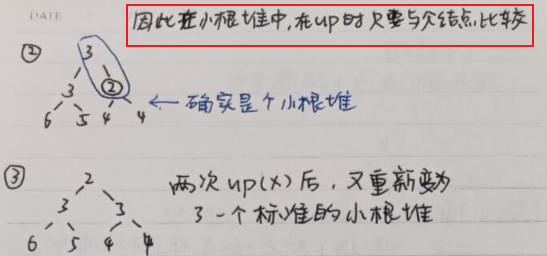 DATE
因此在小根堆中,在up时只要与父结点比较
②
3
3 ②
6 5 4 4
← 确实是个小根堆
③
2
3 3
6 5 4 4
两次up(x)后,又重新变为
3一个标准的小根堆